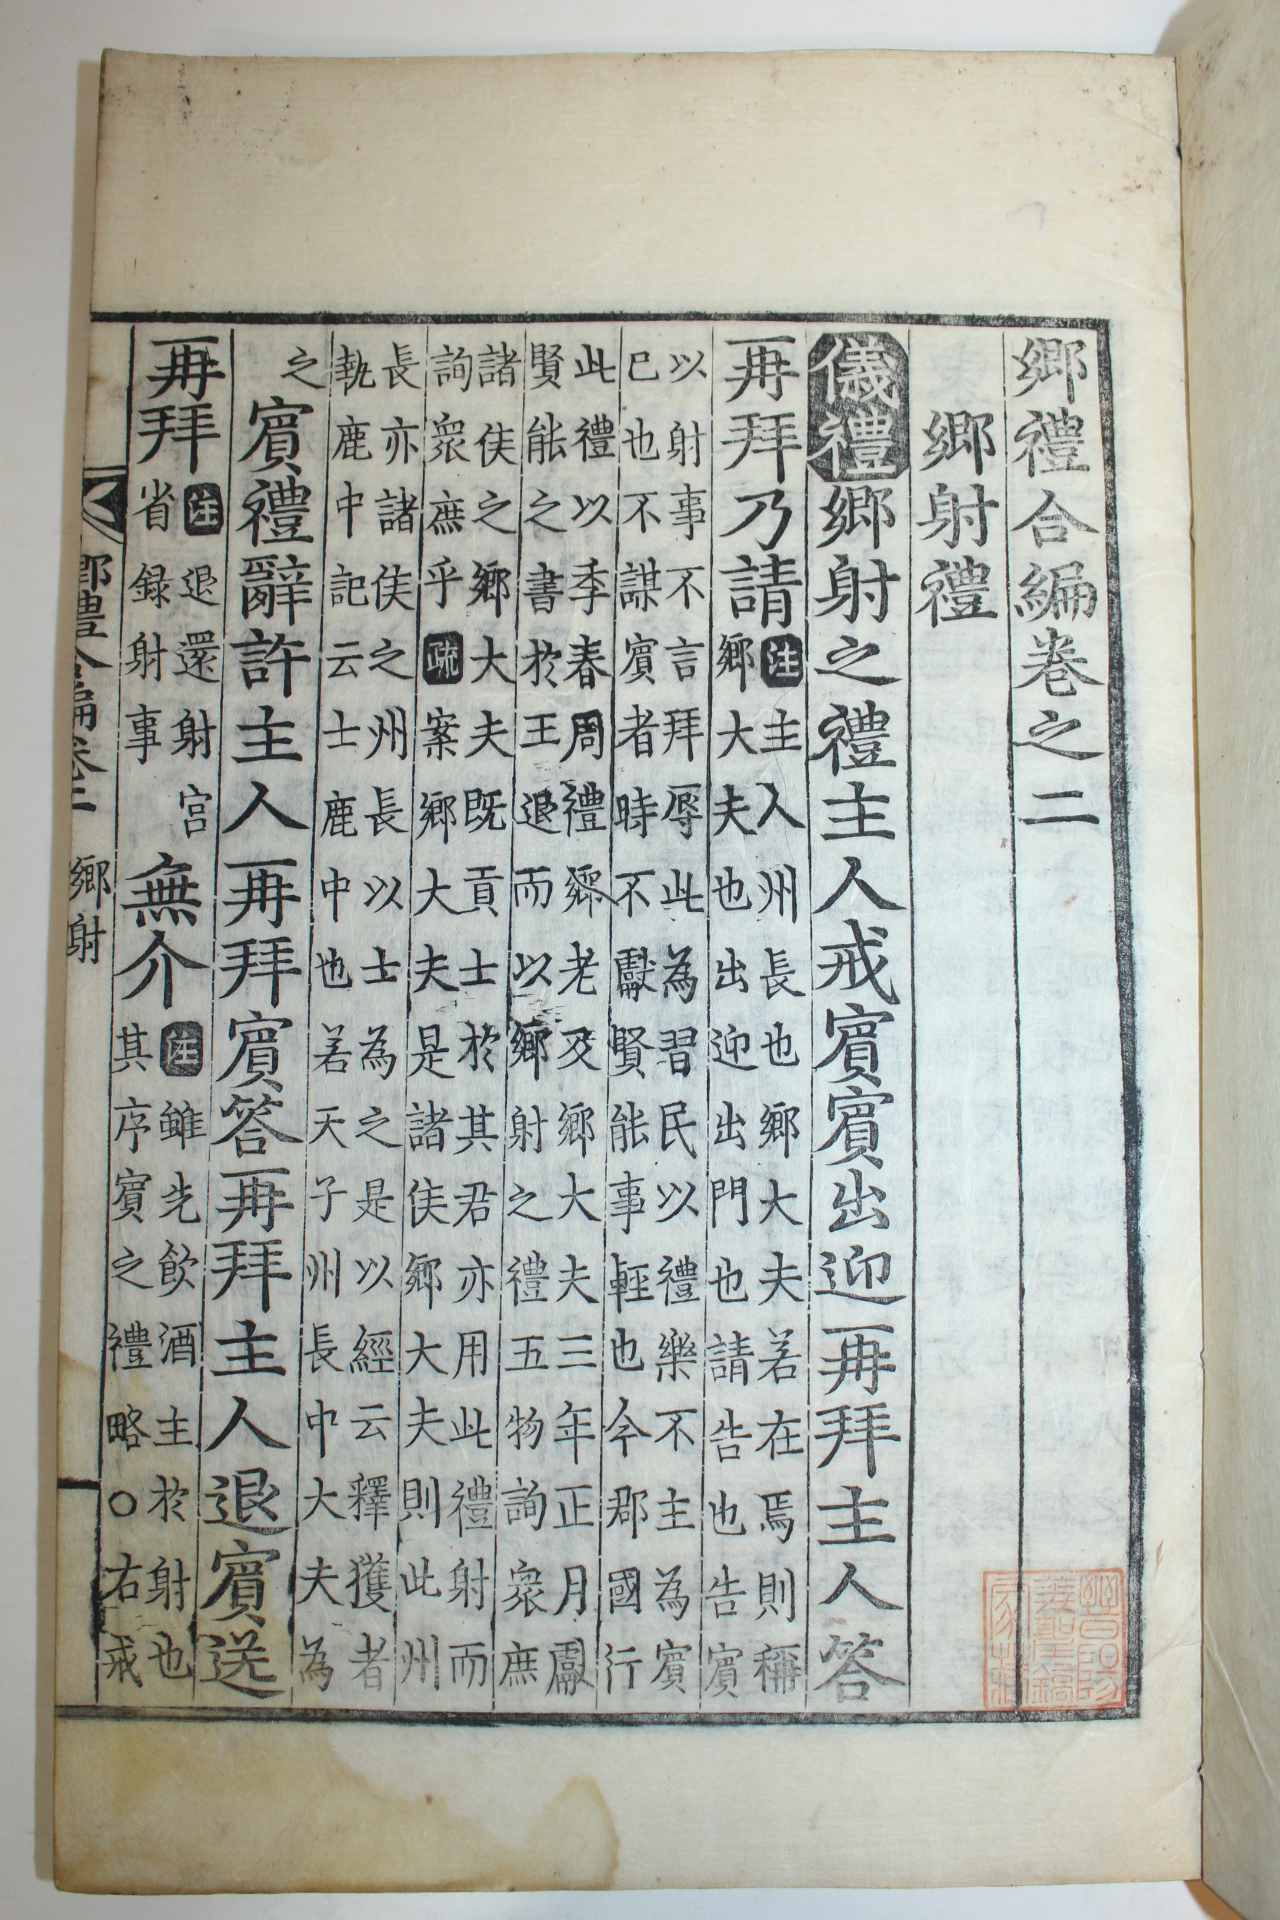 鄉禮合編卷之二
鄉射禮
儀禮鄉射之禮主人戒賓賓出迎再拜主人答
再拜乃請注主人州長也鄉大夫若在焉則稱
鄉大夫也出迎出門也請告也告賓
以射事不言拜辱此為習民以禮樂不主為賓
已也不謀賓者時不獻賢能事輕也今郡國行
此禮以季春周禮鄉老及鄉大夫三年正月獻
賢能之書於王退而以鄉射之禮五物詢衆庶
諸侯之鄉大夫既貢士於其君亦用此禮射而
詢衆庶乎疏案鄉大夫是諸侯鄉大夫則此州
長亦諸侯之州長以士為之是以經云釋獲者
執鹿中記云士鹿中也若天子州長中大夫為
之賓禮辭許主人再拜賓答再拜主人退賓送
再拜注退還射宮
省録射事
無介注雖先飲酒主於射也
其序賓之禮略○右戒
鄉禮合編卷二 鄉射